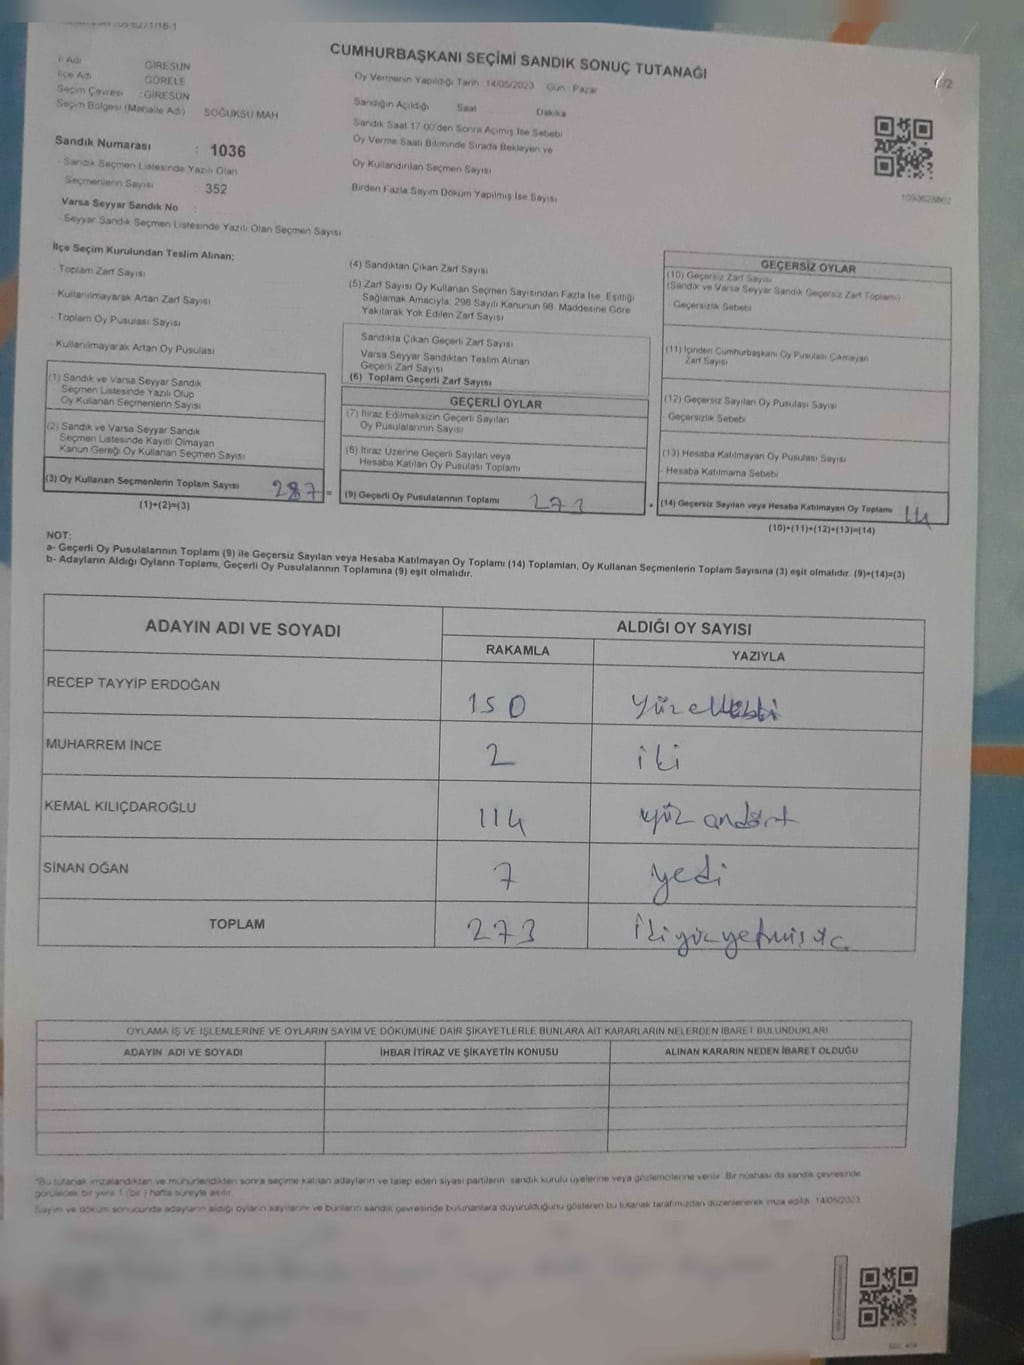 CUMHURBAŞKANI SEÇİMİ SANDIK SONUÇ TUTANAĞI
İl Adı GİRESUN
İlçe Adı GÖRELE
Seçim Çevresi : GİRESUN
Seçim Bölgesi (Mahalle Adı) SOĞUKSU MAH
Sandık Numarası : 1036
- Sandık Seçmen Listesinde Yazılı Olan
Seçmenlerin Sayısı : 352
Varsa Seyyar Sandık No
- Seyyar Sandık Seçmen Listesinde Yazılı Olan Seçmen Sayısı
Oy Vermenin Yapıldığı Tarih : 14/05/2023 Gün : Pazar
Sandığın Açıldığı Saat Dakika
Sandık Saat 17:00'den Sonra Açımış İse Sebebi
Oy Verme Saati Bitiminde Sırada Bekleyen ve
Oy Kullandırılan Seçmen Sayısı
Birden Fazla Sayım Döküm Yapılmış İse Sayısı
1/2
İlçe Seçim Kurulundan Teslim Alınan;
Toplam Zarf Sayısı
Kullanılmayarak Artan Zarf Sayısı
- Toplam Oy Pusulası Sayısı
- Kullanılmayarak Artan Oy Pusulası
(1) Sandık ve Varsa Seyyar Sandık
Seçmen Listesinde Yazılı Olup
Oy Kullanan Seçmenlerin Sayısı
(2) Sandık ve Varsa Seyyar Sandık
Seçmen Listesinde Kayıtlı Olmayan
Kanun Gereği Oy Kullanan Seçmen Sayısı
(3) Oy Kullanan Seçmenlerin Toplam Sayısı 287 =
(1)+(2)=(3)
(4) Sandıktan Çıkan Zarf Sayısı
(5) Zarf Sayısı Oy Kullanan Seçmen Sayısından Fazla İse, Eşitliği
Sağlamak Amacıyla, 298 Sayılı Kanunun 98. Maddesine Göre
Yakılarak Yok Edilen Zarf Sayısı
Sandıkta Çıkan Geçerli Zarf Sayısı
Varsa Seyyar Sandıktan Teslim Alınan
Geçerli Zarf Sayısı
(6) Toplam Geçerli Zarf Sayısı
GEÇERLİ OYLAR
(7) İtiraz Edilmeksizin Geçerli Sayılan
Oy Pusulalarının Sayısı
(8) İtiraz Üzerine Geçerli Sayılan veya
Hesaba Katılan Oy Pusulası Toplamı
(9) Geçerli Oy Pusulalarının Toplamı 273 +
GEÇERSİZ OYLAR
(10) Geçersiz Zarf Sayısı
(Sandık ve Varsa Seyyar Sandık Geçersiz Zarf Toplamı)
Geçersizlik Sebebi
(11) İçinden Cumhurbaşkanı Oy Pusulası Çıkmayan
Zarf Sayısı
(12) Geçersiz Sayılan Oy Pusulası Sayısı
- Geçersizlik Sebebi
(13) Hesaba Katılmayan Oy Pusulası Sayısı
- Hesaba Katılmama Sebebi
(14) Geçersiz Sayılan veya Hesaba Katılmayan Oy Toplamı 14
(10)+(11)+(12)+(13)=(14)
NOT:
a- Geçerli Oy Pusulalarının Toplamı (9) ile Geçersiz Sayılan veya Hesaba Katılmayan Oy Toplamı (14) Toplamları, Oy Kullanan Seçmenlerin Toplam Sayısına (3) eşit olmalıdır. (9)+(14)=(3)
b- Adayların Aldığı Oyların Toplamı, Geçerli Oy Pusulalarının Toplamına (9) eşit olmalıdır.
ADAYIN ADI VE SOYADI ALDIĞI OY SAYISI
RAKAMLA YAZIYLA
RECEP TAYYİP ERDOĞAN 150
MUHARREM İNCE 2 iki
KEMAL KILIÇDAROĞLU 114 yüz ondört
SİNAN OĞAN 7 yedi
TOPLAM 273 ikiyüzyetmişüç
OYLAMA İŞ VE İŞLEMLERİNE VE OYLARIN SAYIM VE DÖKÜMÜNE DAİR ŞİKAYETLERLE BUNLARA AİT KARARLARIN NELERDEN İBARET BULUNDUKLARI
ADAYIN ADI VE SOYADI İHBAR İTİRAZ VE ŞİKAYETİN KONUSU ALINAN KARARIN NEDEN İBARET OLDUĞU
"Bu tutanak imzalandıktan ve mühürlendikten sonra seçime katılan adayların ve talep eden siyasi partilerin sandık kurulu üyelerine veya gözlemcilerine verilir. Bir nüshası da sandık çevresinde
görülecek bir yere 1 (bir ) hafta süreyle asılır.
Sayım ve döküm sonucunda adayların aldığı oyların sayılarını ve bunların sandık çevresinde bulunanlara duyurulduğunu gösteren bu tutanak tarafımızdan düzenlenerek imza edildi. 14/05/2023